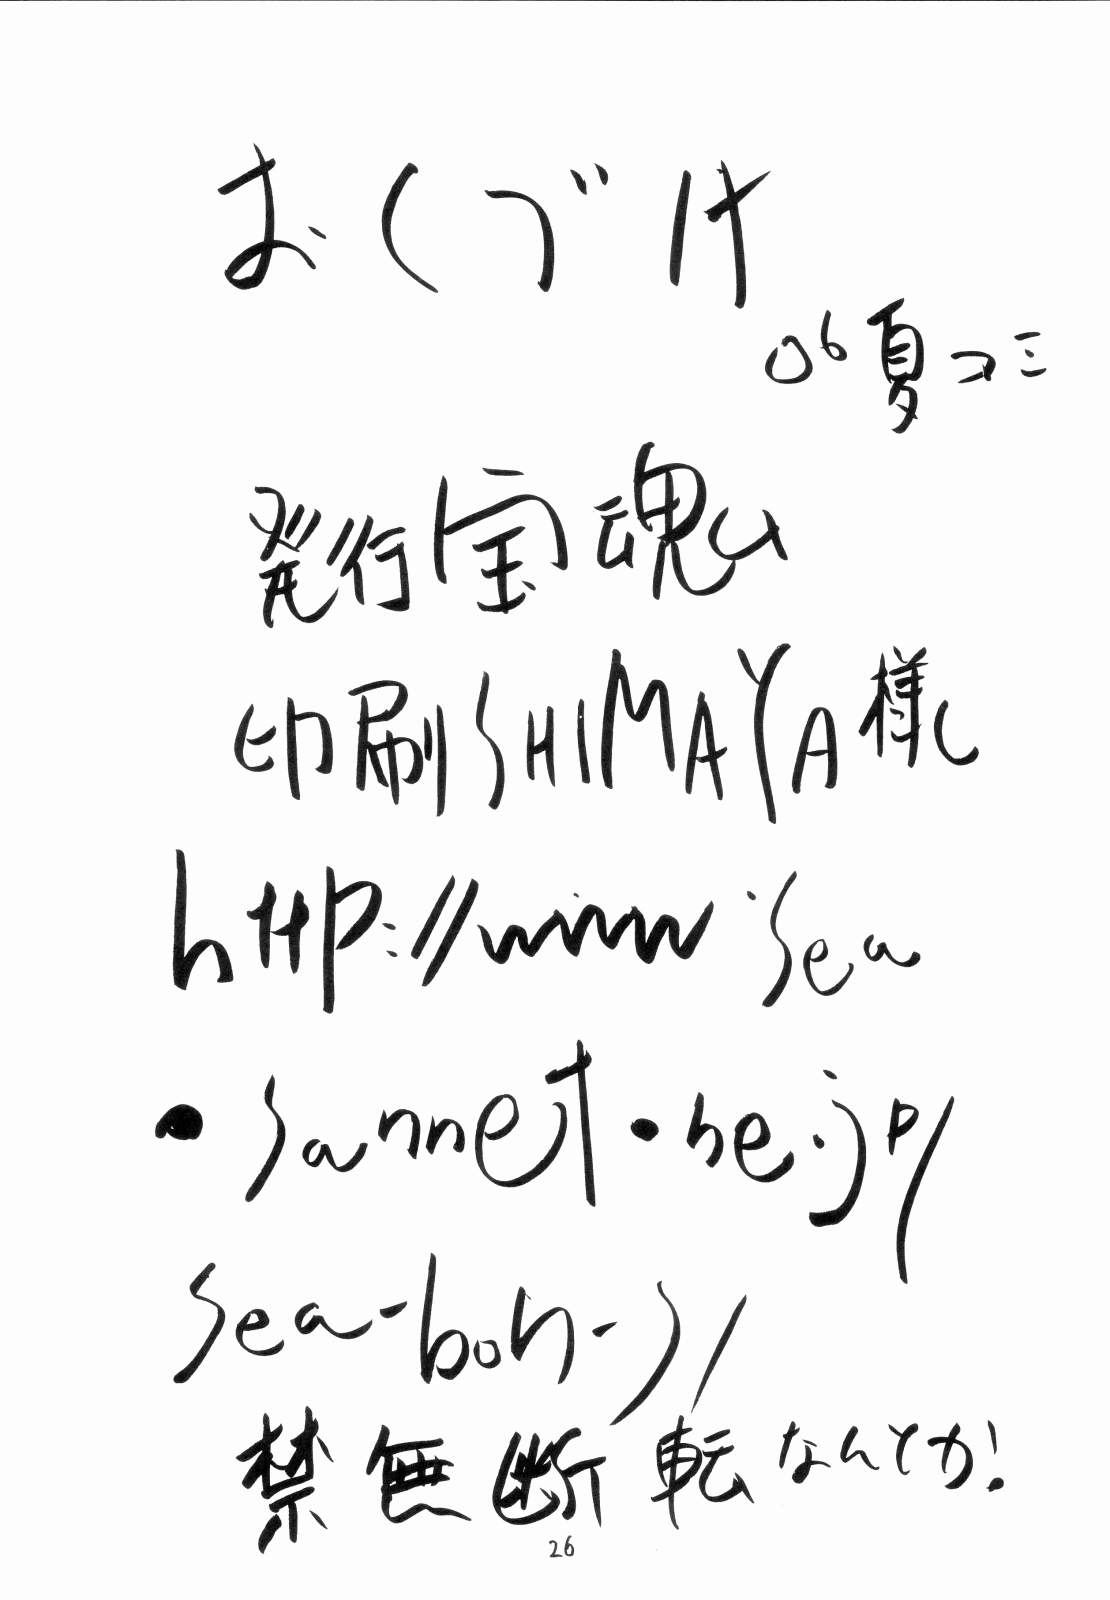 おくづけ
06夏コミ
発行 宝魂山
印刷 SHIMAYA様し
http://www.sea
・sannet・ne.jp/
sea-bon-s/
禁無断転なんとか!
26